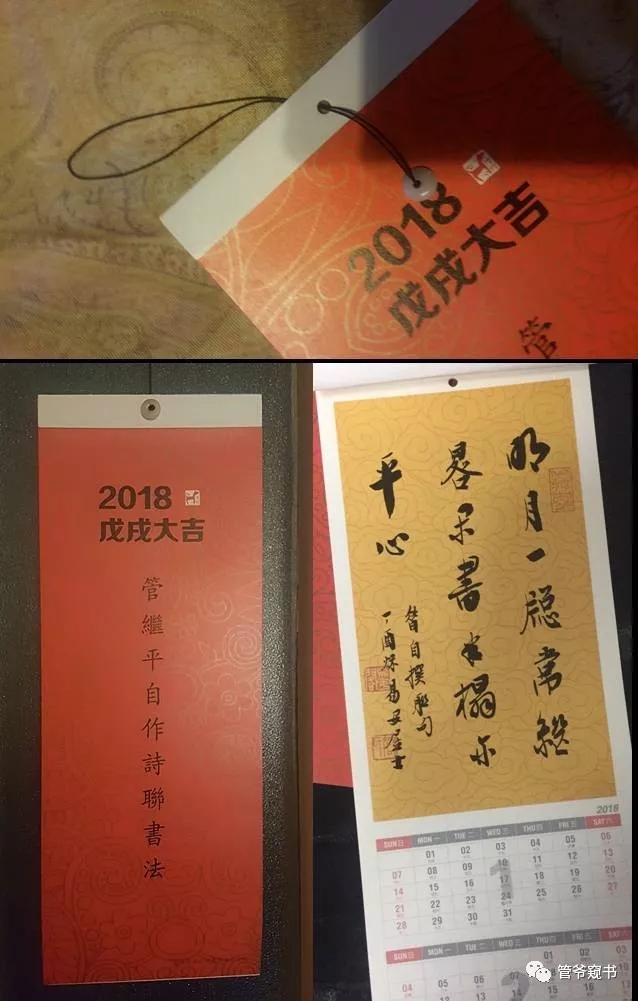 2018
戊戌大吉
管
2018
戊戌大吉
管繼平自作詩聯書法
明月一牕常継
晷乐書半榻亦
平心
自撰聯句
丁酉秋易安居士
2018
SUN日 MON一 TUE二 WED三 THU四 FRI五 SAT六
01 02 03 04 05 06
07 08 09 10 11 12 13
14 15 16 17 18 19 20
21 22 23 24 25 26 27
28 29 30 31
1
SUN日 MON一 TUE二 WED三 THU四 FRI五 SAT六
01 02 03
04
2
管爷窥书